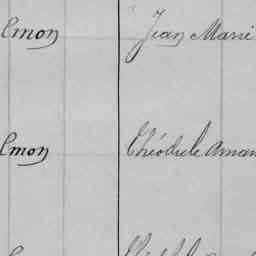 Emon Jean Marie
Emon Théodule Aman